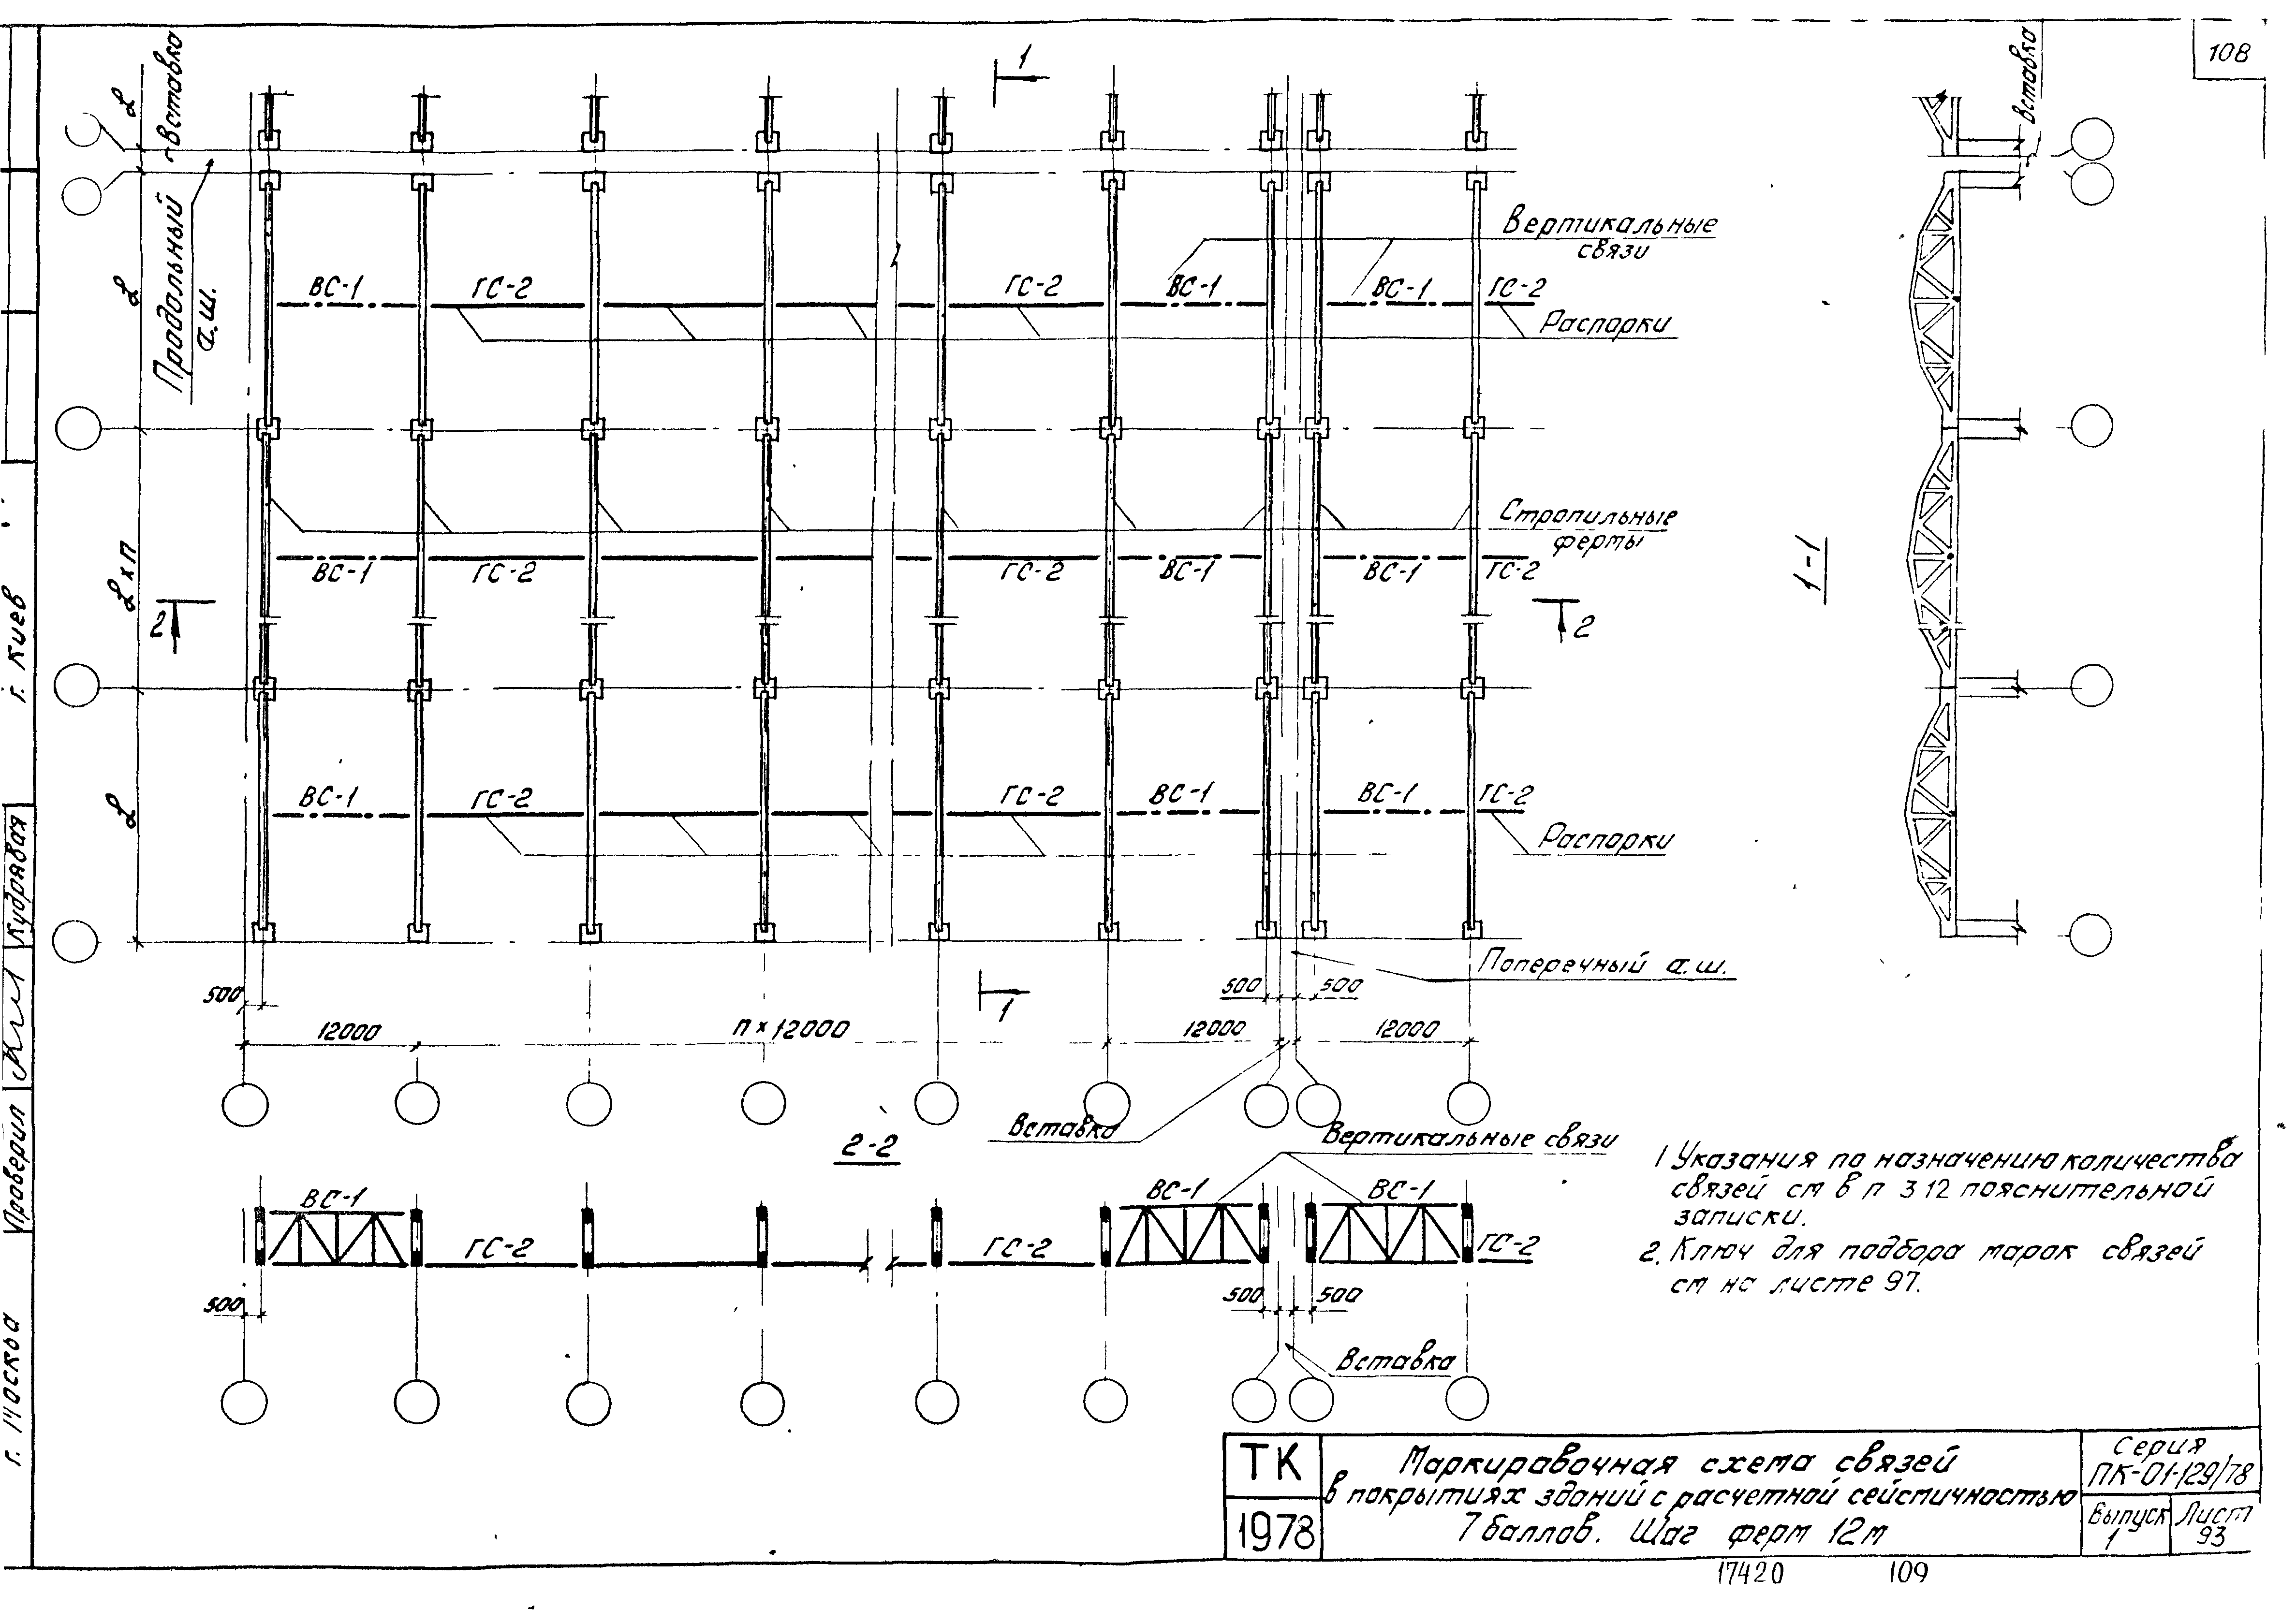 108
1
Вставка
L
L
L x п
L
Продольный
а.ш.
Вставка
Вертикальные
связи
ВС-1 ГС-2 ГС-2 ВС-1 ВС-1 ГС-2
Распорки
Стропильные
фермы
ВС-1 ГС-2 ГС-2 ВС-1 ВС-1 ГС-2
2 2
1-1
ВС-1 ГС-2 ГС-2 ВС-1 ВС-1 ГС-2
Распорки
Поперечный а.ш.
500 500 500
1
12000 п × 12000 12000 12000
Вставка
2-2
Вертикальные связи
ВС-1 ВС-1 ВС-1
ГС-2 ГС-2 ГС-2
500 500 500
Вставка
1 Указания по назначению количества
связей см в п 3 12 пояснительной
записки.
2. Ключ для подбора марок связей
см на листе 97.
г. Киев
Кудрявая
Проверил
г. Москва
ТК
1978
Маркировочная схема связей
в покрытиях зданий с расчетной сейсмичностью
7 баллов. Шаг ферм 12м
Серия
ПК-01-129/78
Выпуск
1
Лист
93
17420 109